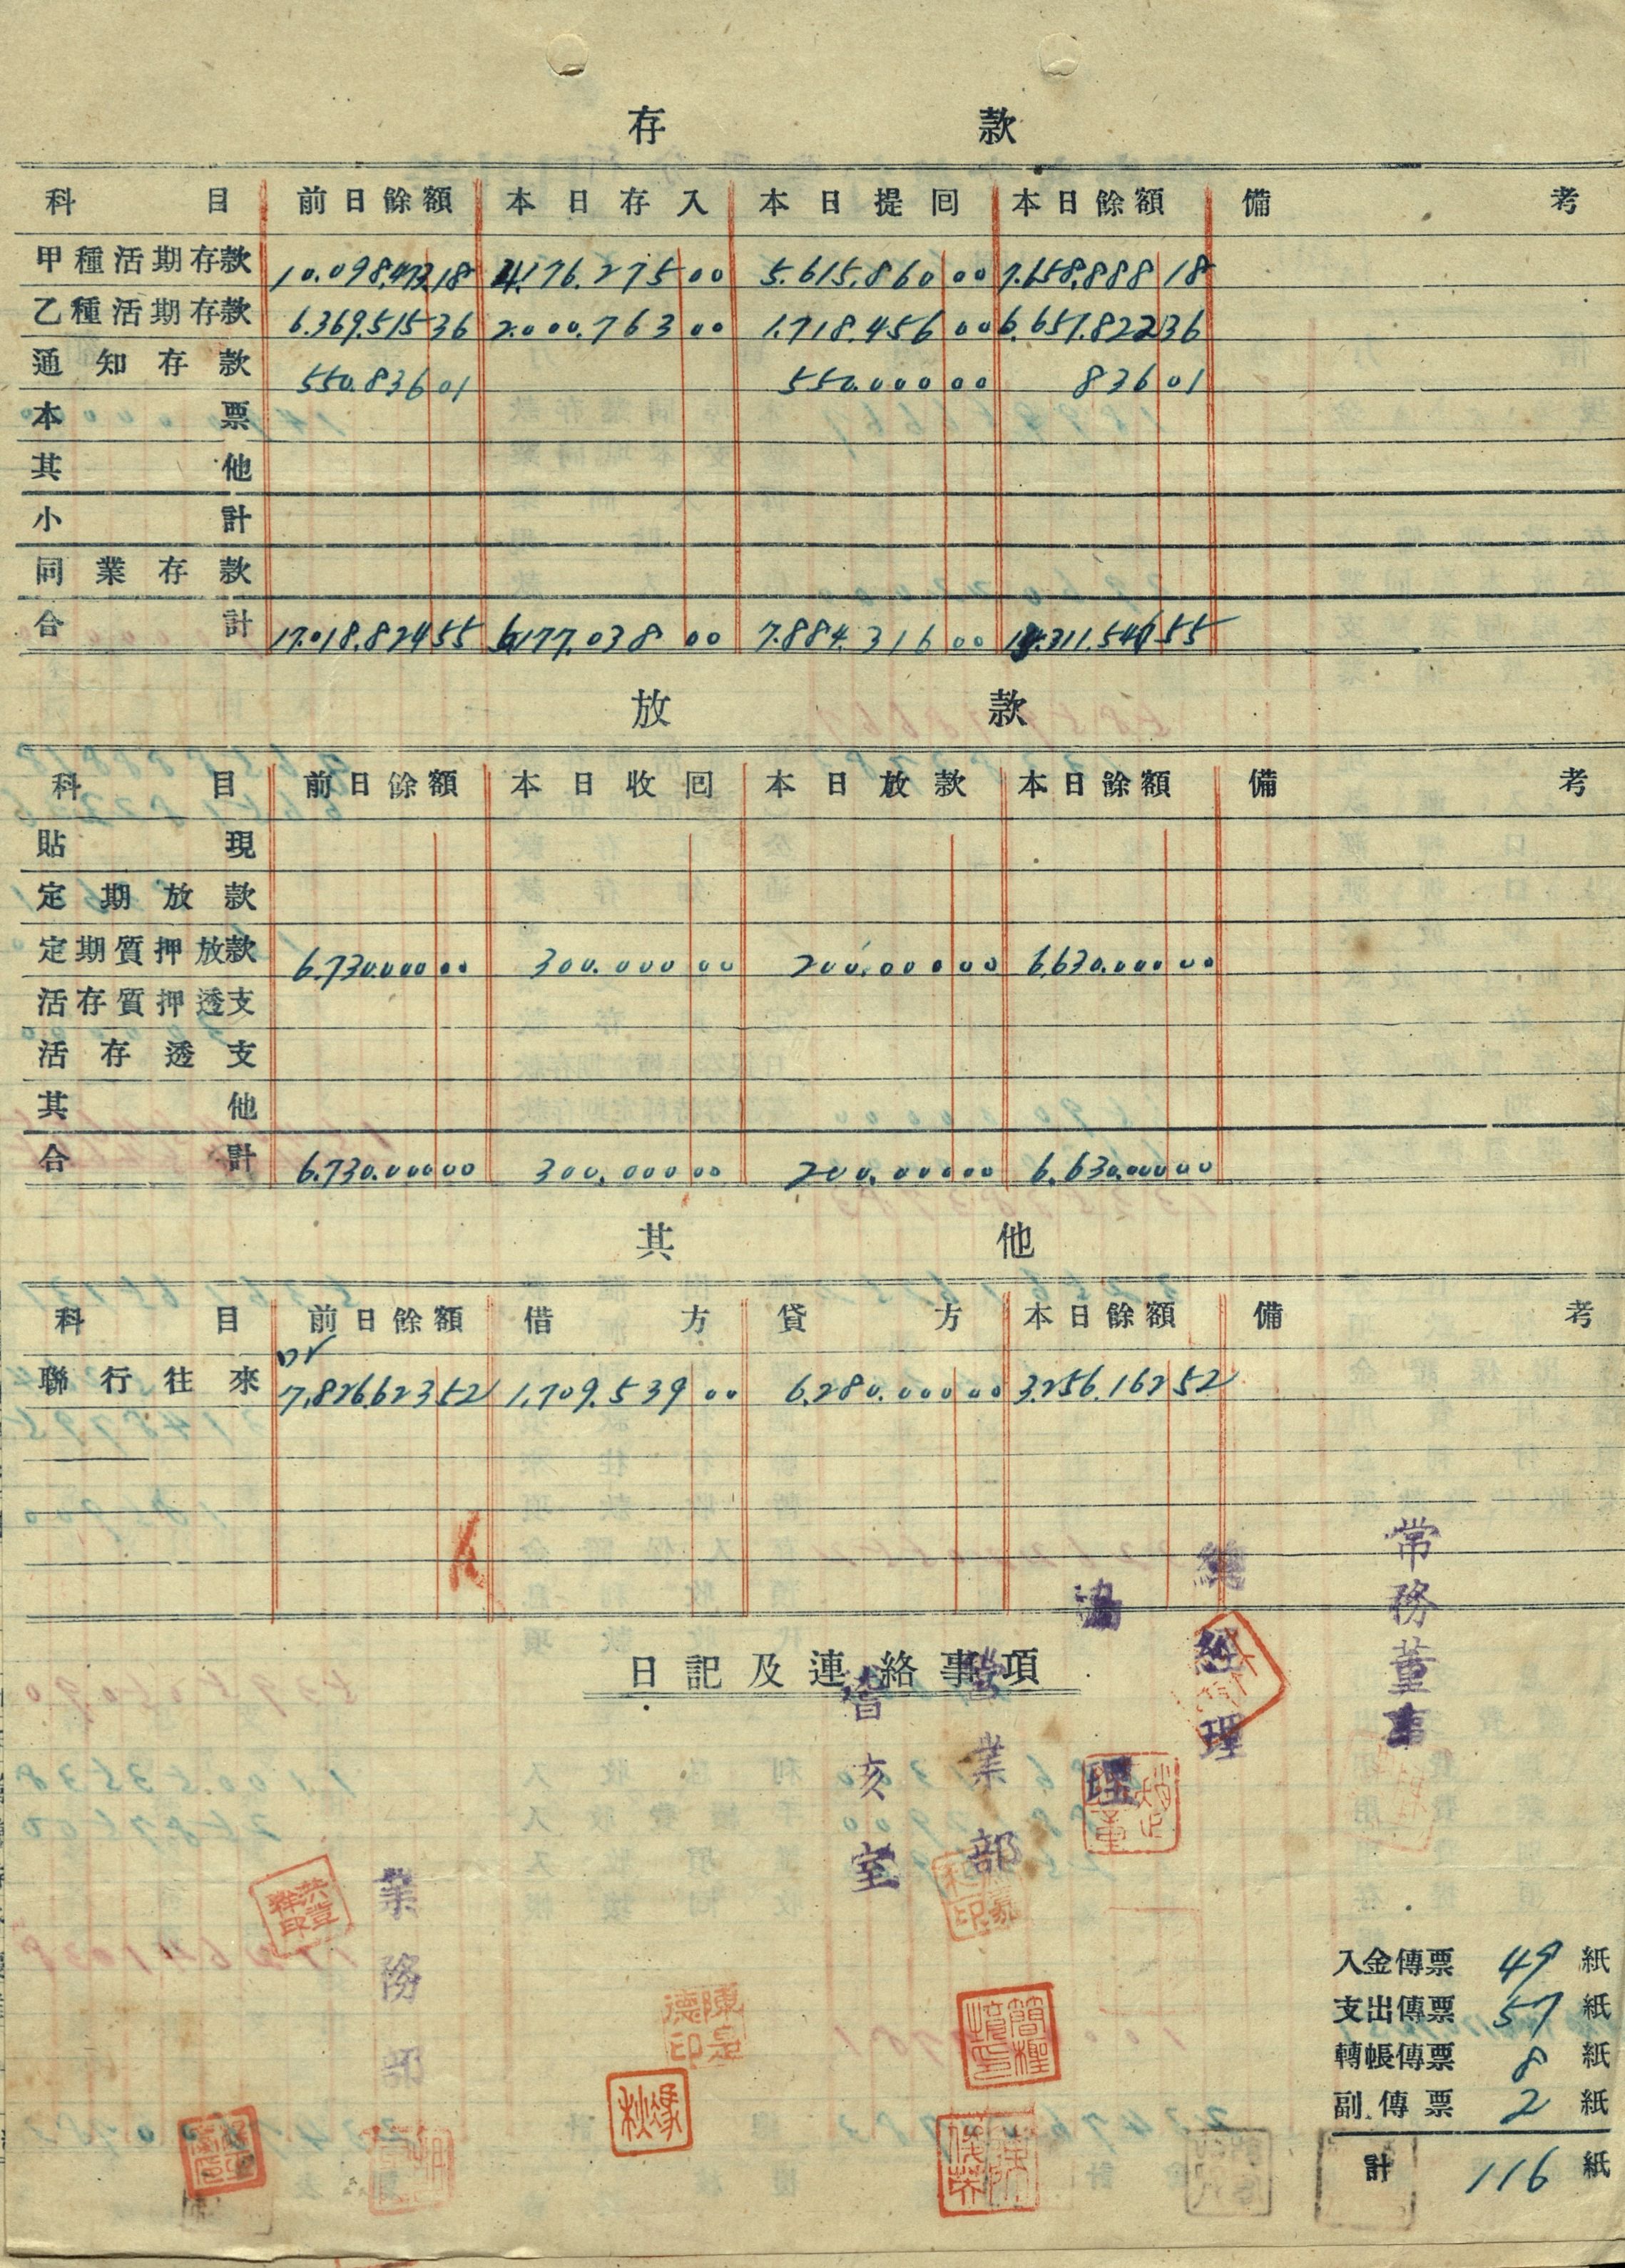 存款
科目 前日餘額 本日存入 本日提回 本日餘額 備考
甲種活期存款 10.098.473 18 3.176.275 00 5.615.860 00 7.658.888 18
乙種活期存款 6.369.515 36 2.000.763 00 1.718.456 00 6.651.822 36
通知存款 550.836 01 550.000 00 836 01
本票
其他
小計
同業存款
合計 17.018.824 55 5.177.038 00 7.884.316 00 14.311.546 55
放款
科目 前日餘額 本日收回 本日放款 本日餘額 備考
貼現
定期放款
定期質押放款 6.730.000 00 300.000 00 200.000 00 6.630.000 00
活存質押透支
活存透支
其他
合計 6.730.000 00 300.000 00 200.000 00 6.630.000 00
其他
科目 前日餘額 借方 貸方 本日餘額 備考
聯行往來 7.826.623 52 1.709.539 00 6.280.000 00 3.256.162 52
日記及連絡事項
常務董事
總經理
協理
營業部
業務部
入金傳票 49 紙
支出傳票 57 紙
轉帳傳票 8 紙
副傳票 2 紙
計 116 紙